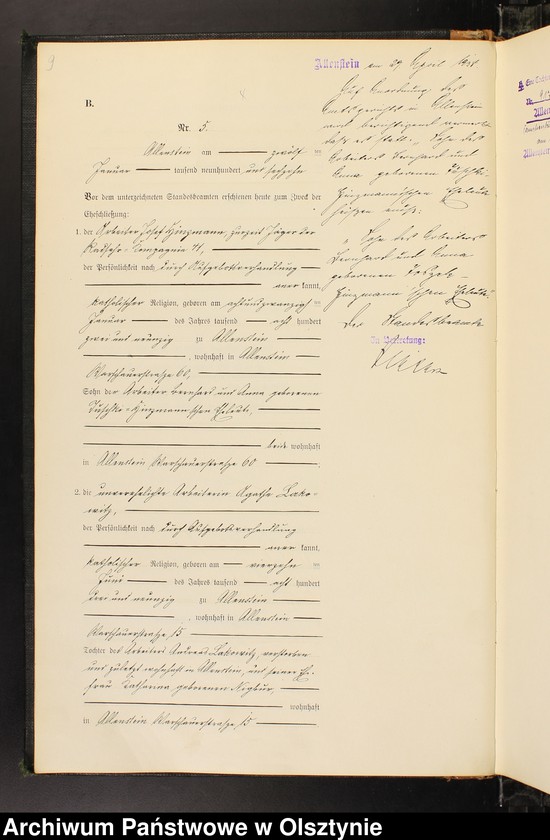 9
B.
Nr. 5.
Allenstein am zwölf ten
Januar tausend neunhundert und sechzehn
Vor dem unterzeichneten Standesbeamten erschienen heute zum Zweck der
Eheschließung:
1. der Arbeiter Josef Hinzmann, zurzeit Jäger der
Radfahr-Kompagnie
der Persönlichkeit nach durch Aufgebotsverhandlung
aner kannt,
katholischer Religion, geboren am achtundzwanzig ten
Januar des Jahres tausend acht hundert
zwei und neunzig zu Allenstein
, wohnhaft in Allenstein
Warschauerstraße 60,
Sohn der Arbeiter Bernhard und Anna geborenen
Hinzmannschen Eheleute,
beide wohnhaft
in Allenstein Warschauerstraße 60
2. die unverehelichte Arbeiterin Agathe Lako-
witz,
der Persönlichkeit nach durch Aufgebotsverhandlung
aner kannt,
katholischer Religion, geboren am vierzehn ten
Juni des Jahres tausend acht hundert
drei und neunzig zu Allenstein
, wohnhaft in Allenstein
Warschauerstraße 15
Tochter des Arbeiters Andreas Lakowitz, verstorben
und zuletzt wohnhaft in Allenstein, und seiner Ehe-
frau Katharina geborenen
wohnhaft
in Allenstein Warschauerstraße 15
Allenstein am 29 April
Auf Anordnung des
Amtsgerichts in Allenstein
wird berichtigend vermerkt
daß es statt: „Sohn des
Arbeiters Bernhard und
Anna geborenen
Hinzmannschen Eheleute
heißen muß:
„Sohn des Arbeiters
Bernhard und Anna
geborenen
Hinzmann'schen Eheleute"
Der Standesbeamte
In Vertretung:
Archiwum Państwowe w Olsztynie